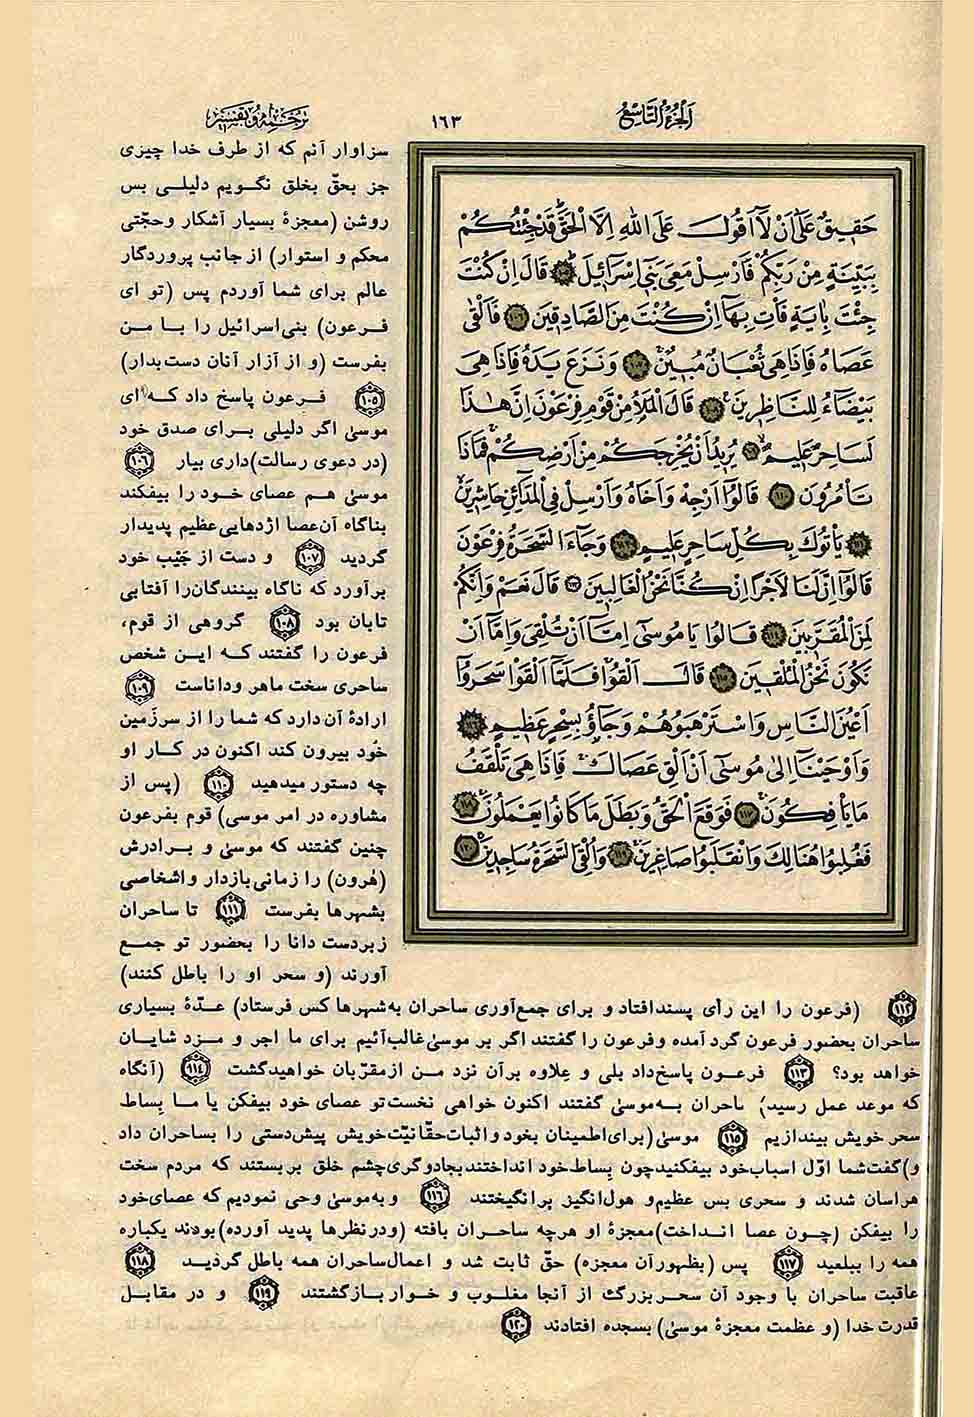 الجزء التاسع
١٦٣
ترجمه و تفسیر
حَقيقٌ عَلىٰ اَنْ لٰا اَقُولَ عَلَى اللهِ اِلَّا الْحَقَّ قَدْ جِئْتُكُمْ
بِبَيِّنَةٍ مِنْ رَبِّكُمْ فَاَرْسِلْ مَعِىَ بَنى اِسْرٰائيلَ ﴿١٠٥﴾ قٰالَ اِنْ كُنْتَ
جِئْتَ بِاٰيَةٍ فَأْتِ بِهٰا اِنْ كُنْتَ مِنَ الصّٰادِقينَ ﴿١٠٦﴾ فَاَلْقىٰ
عَصٰاهُ فَاِذٰا هِىَ ثُعْبٰانٌ مُبينٌ ﴿١٠٧﴾ وَنَزَعَ يَدَهُ فَاِذٰا هِىَ
بَيْضٰاءُ لِلنّٰاظِرينَ ﴿١٠٨﴾ قٰالَ الْمَلَاُ مِنْ قَوْمِ فِرْعَوْنَ اِنَّ هٰذٰا
لَسٰاحِرٌ عَليمٌ ﴿١٠٩﴾ يُريدُ اَنْ يُخْرِجَكُمْ مِنْ اَرْضِكُمْ فَمٰاذٰا
تَأْمُرُونَ ﴿١١٠﴾ قٰالُوٓا اَرْجِهْ وَاَخٰاهُ وَاَرْسِلْ فِى الْمَدٰائِنِ حٰاشِرينَ
﴿١١١﴾ يَأْتُوكَ بِكُلِّ سٰاحِرٍ عَليمٍ ﴿١١٢﴾ وَجٰاءَ السَّحَرَةُ فِرْعَوْنَ
قٰالُوٓا اِنَّ لَنٰا لَاَجْرًا اِنْ كُنّٰا نَحْنُ الْغٰالِبينَ ﴿١١٣﴾ قٰالَ نَعَمْ وَاِنَّكُمْ
لَمِنَ الْمُقَرَّبينَ ﴿١١٤﴾ قٰالُوا يٰا مُوسىٰ اِمّٰا اَنْ تُلْقِىَ وَاِمّٰا اَنْ
نَكُونَ نَحْنُ الْمُلْقينَ ﴿١١٥﴾ قٰالَ اَلْقُوا فَلَمّٰا اَلْقَوْا سَحَرُوٓا
اَعْيُنَ النّٰاسِ وَاسْتَرْهَبُوهُمْ وَجٰاؤُ بِسِحْرٍ عَظيمٍ ﴿١١٦﴾
وَاَوْحَيْنٰا اِلىٰ مُوسىٰ اَنْ اَلْقِ عَصٰاكَ فَاِذٰا هِىَ تَلْقَفُ
مٰا يَأْفِكُونَ ﴿١١٧﴾ فَوَقَعَ الْحَقُّ وَبَطَلَ مٰا كٰانُوا يَعْمَلُونَ ﴿١١٨﴾
فَغُلِبُوا هُنٰالِكَ وَانْقَلَبُوا صٰاغِرينَ ﴿١١٩﴾ وَاُلْقِىَ السَّحَرَةُ سٰاجِدينَ ﴿١٢٠﴾
سزاوار آنم که از طرف خدا چیزی
جز بحقّ بخلق نگویم دلیلی بس
روشن (معجزۀ بسیار آشکار وحجّتی
محکم و استوار) از جانب پروردگار
عالم برای شما آوردم پس (تو ای
فرعون) بنی‌اسرائیل را با من
بفرست (و از آزار آنان دست‌بدار)
﴿١٠٥﴾ فرعون پاسخ داد که ای
موسیٰ اگر دلیلی برای صدق خود
(در دعوی رسالت)داری بیار ﴿١٠٦﴾
موسیٰ هم عصای خود را بیفکند
بناگاه آن‌عصا اژدهایی‌عظیم پدیدار
گردید ﴿١٠٧﴾ و دست از جَیْب خود
برآورد که ناگاه بینندگان‌را آفتابی
تابان بود ﴿١٠٨﴾ گروهی از قوم،
فرعون را گفتند که این شخص
ساحری سخت ماهر وداناست ﴿١٠٩﴾
ارادۀ آن دارد که شما را از سرزَمین
خُود بیرون کند اکنون در کار او
چه دستور میدهید ﴿١١٠﴾ (پس از
مشاوره در امر موسی) قوم بفرعون
چنین گفتند که موسیٰ و برادرش
(هٰرون) را زمانی بازدار واشخاصی
بشهرها بفرست ﴿١١١﴾ تا ساحران
زبردست دانا را بحضور تو جمع
آورند (و سحر او را باطل کنند)
﴿١١٢﴾ (فرعون را این رأی پسندافتاد و برای جمع‌آوری ساحران به‌شهرها کس فرستاد) عدّۀ بسیاری
ساحران بحضور فرعون گرد آمده وفرعون را گفتند اگر بر موسیٰ غالب‌آئیم برای ما اجر و مزد شایان
خواهد بود؟ ﴿١١٣﴾ فرعون پاسخ‌داد بلی و علاوه برآن نزد من ازمقرّبان خواهیدگشت ﴿١١٤﴾ (آنگاه
که موعد عمل رسید) ساحران به‌موسیٰ گفتند اکنون خواهی نخست‌تو عصای خود بیفکن یا ما بِساط
سحر خویش بیندازیم ﴿١١٥﴾ موسیٰ(برای‌اطمینان بخود و اثبات حقّانیّت‌خویش پیش‌دستی را بساحران داد
و)گفت‌شما اوّل اسباب‌خود بیفکنیدچون بِساط‌خود انداختندبجادوگری‌چشم خلق بربستند که مردم سخت
هراسان شدند و سحری بس عظیم‌و هول‌انگیز برانگیختند ﴿١١٦﴾ وبه‌موسیٰ وحی نمودیم که عصای‌خود
را بیفکن (چون عصا انداخت)معجزۀ او هرچه ساحران بافته (ودرنظرها پدید آورده)بودند یکباره
همه را ببلعید ﴿١١٧﴾ پس (بظهورآن معجزه) حقّ ثابت شد و اعمال‌ساحران همه باطل گردید ﴿١١٨﴾
عاقبت ساحران با وجود آن سحربزرگ از آنجا مغلوب و خوار بازگشتند ﴿١١٩﴾ و در مقابل
قدرت خدا (و عظمت معجزۀ موسیٰ) بسجده افتادند ﴿١٢٠﴾